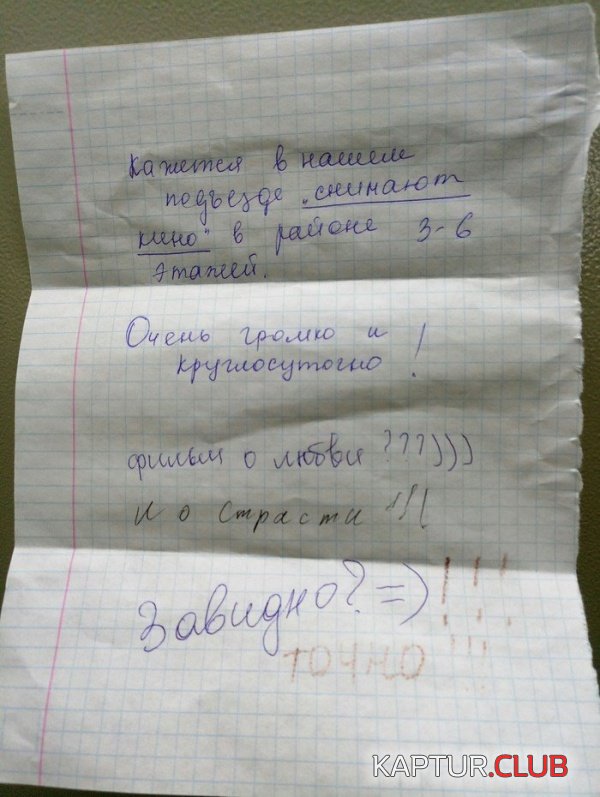 Кажется в нашем
подъезде „снимают
кино" в районе 3-6
этажей.
Очень громко и
круглосуточно !
фильм о любви ???)))
и о страсти !!!
Завидно? =) !!!
точно !!!
KAPTUR.CLUB